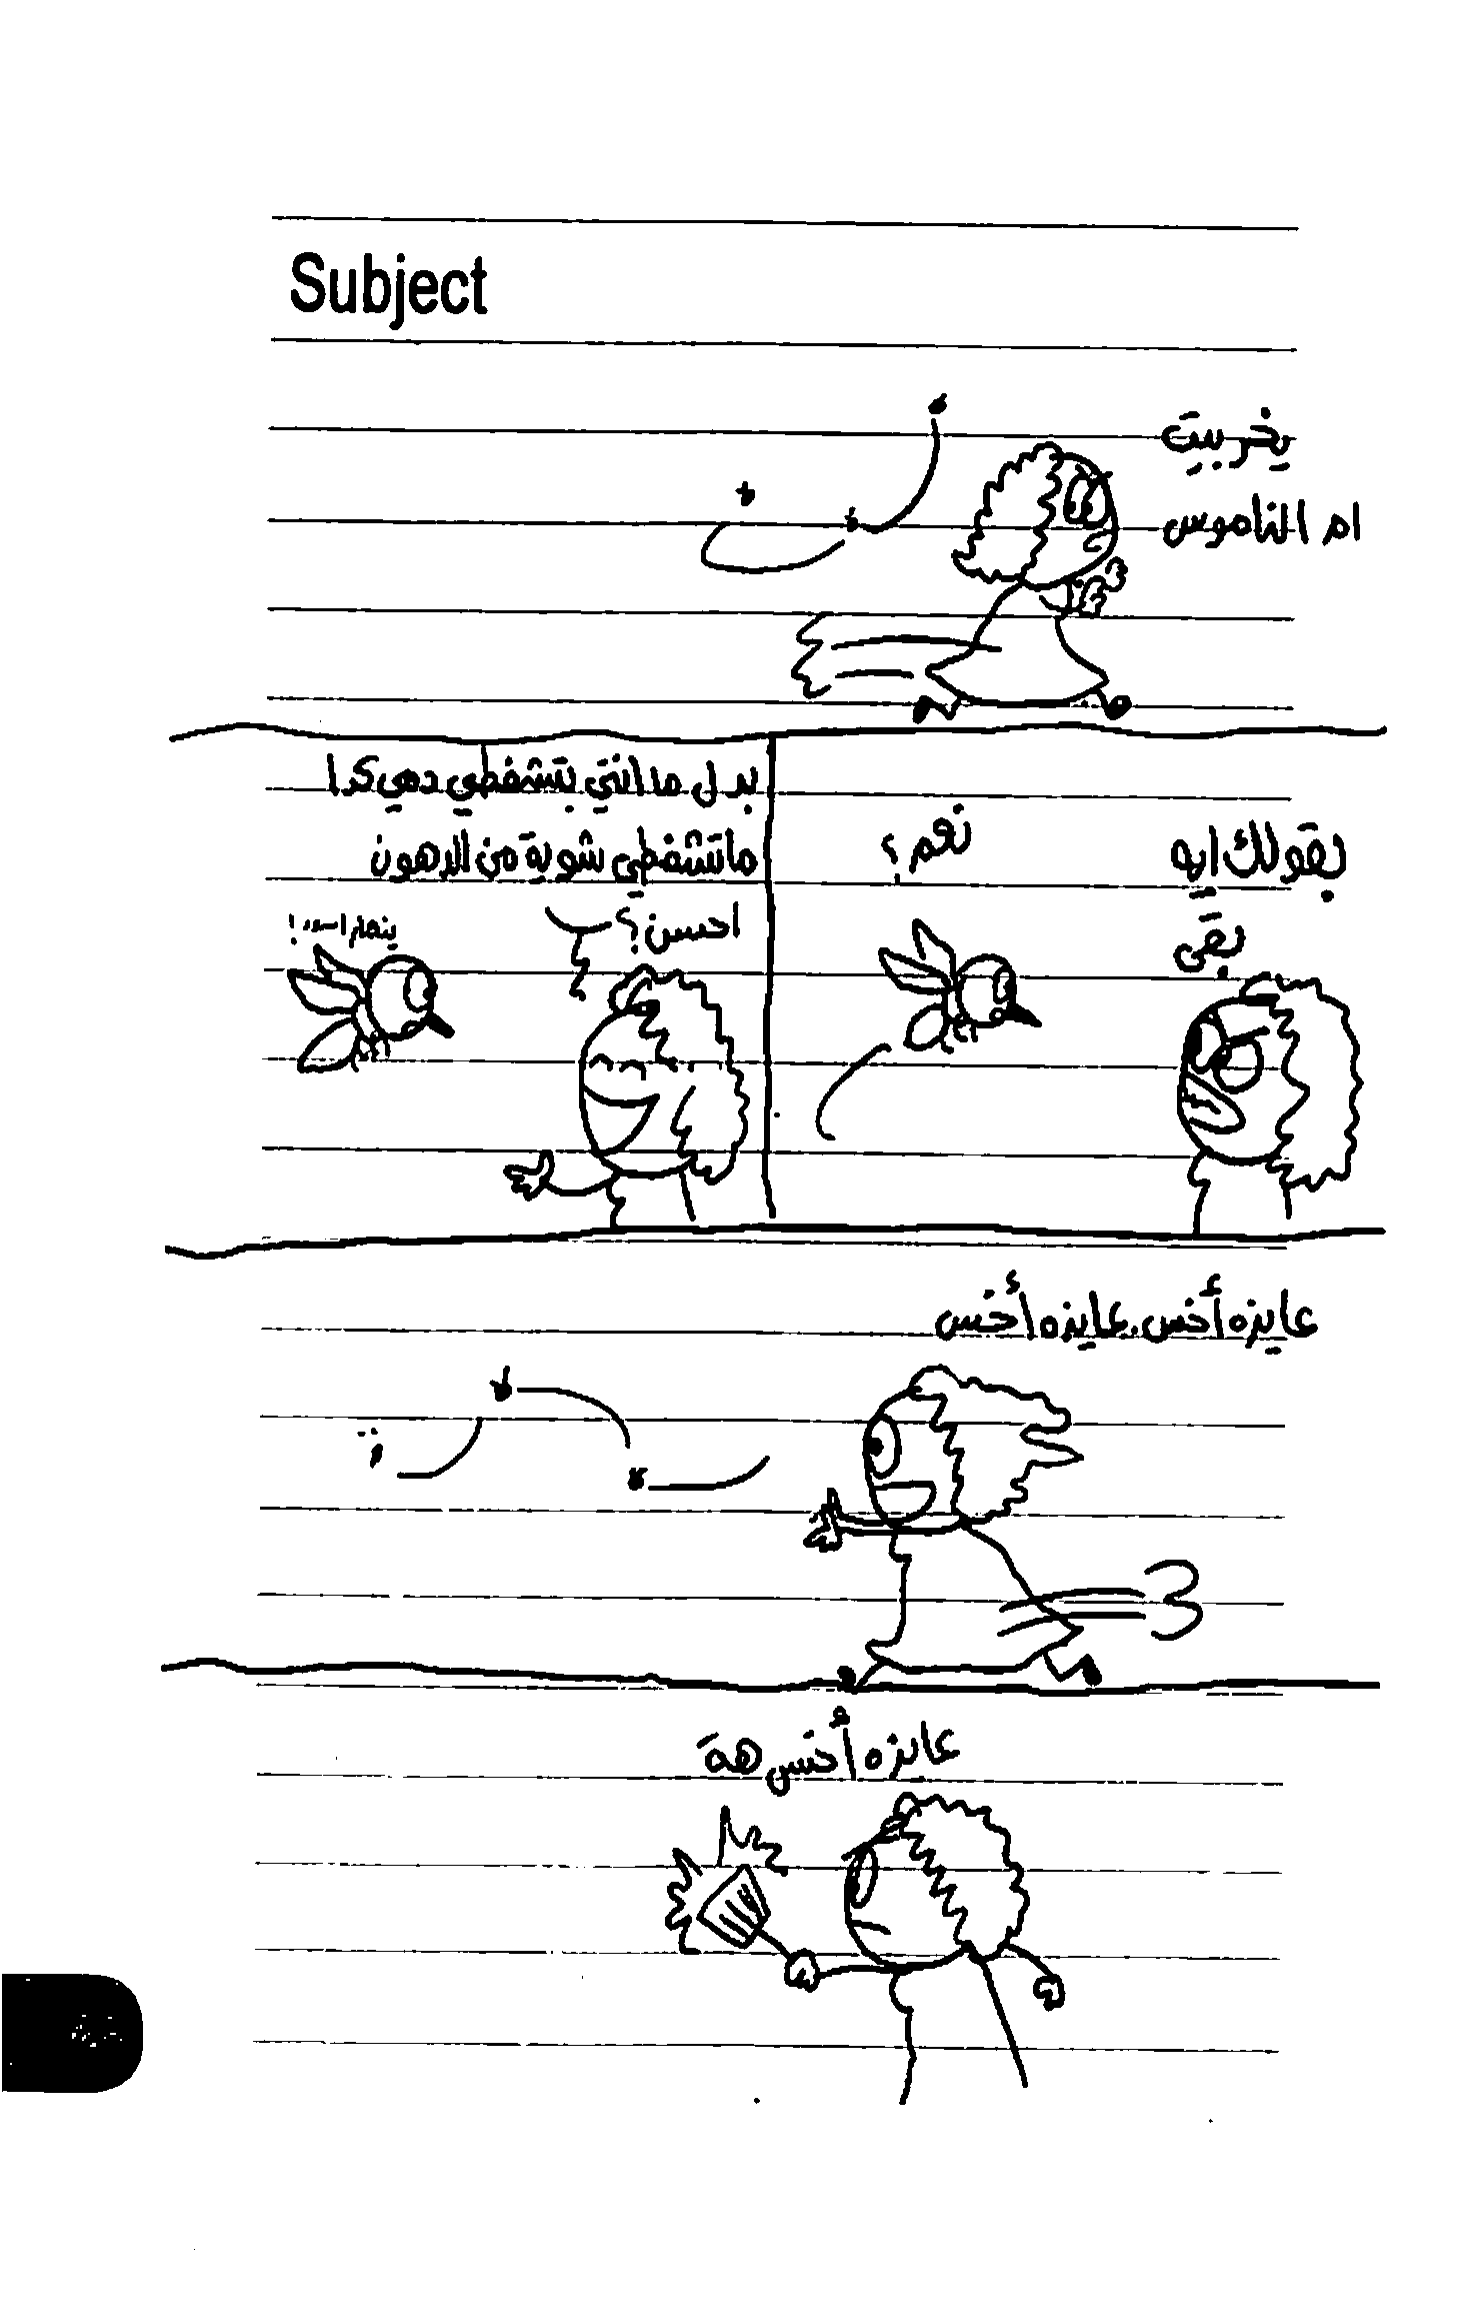 Subject
يخربيت
ام الناموس
بقولك ايه
بقى
نعم؟
بدل ما انتي بتشفطي دمي كدا
ماتشفطي شوية من الدهون
احسن؟
عايزه أخس، عايزه أخس
عايزه أخس هه